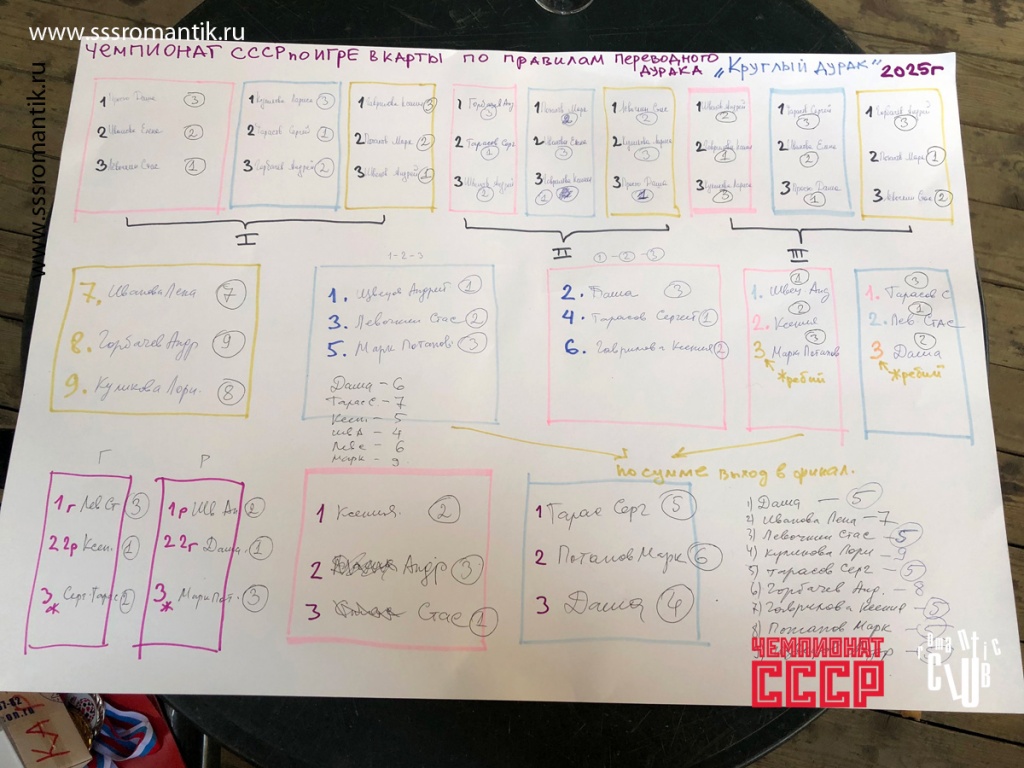 www.sssromantik.ru
www.sssromantik.ru
ЧЕМПИОНАТ СССР по ИГРЕ В КАРТЫ ПО ПРАВИЛАМ ПЕРЕВОДНОГО
ДУРАКА „КРУГЛЫЙ ДУРАК" 2025г
1 Даша 3
2 Иванова Елена 2
3 Левочкин Стас 1
1 Куликова Лариса 3
2 Тарасов Сергей 1
3 Горбачев Андрей 2
1 3
2 Потапов Марк 2
3 Швецов Андрей 1
1 Горбачев Анд
3
2 Тарасов Серг
1
3 Швецов Андрей
2
1 Потапов Марк
2
2 Иванова Елена
3
3
1
1 Левочкин Стас
2
2 Куликова Лариса
3
3 Даша
1
1 Швецов Андрей
2
2
1
3 Куликова Лариса
3
1 Тарасов Сергей
3
2 Иванова Елена
2
3 Даша
1
1 Горбачев Андрей
3
2 Потапов Марк 1
3 Левочкин Стас 2
I
II
III
7. Иванова Лена 7
8. Горбачев Андр 9
9. Куликова Лори. 8
1-2-3
1. Швецов Андрей 1
3. Левочкин Стас 2
5. Марк Потапов 3
Даша - 6
Тарас С - 7
Ксен. - 5
Шв А - 4
Лев С - 6
Марк - 9
1 - 2 - 3
2. Даша 3
4. Тарасов Сергей 1
6. Гаврилова Ксения 2
1
1. Швец. Анд
2
2. Ксения
3
3 Марк Потапов
Жребий
3
1. Тарасов С
1
2. Лев. Стас
2
3 Даша
Жребий
по сумме выход в финал.
Г
1г Лев Ст 3
2 2р Ксен. 1
3 Серг Тарас 2
Р
1р Шв Ан 2
2 2г Даша 1
3 Марк Пот. 3
1 Ксения 2
2 Андр 3
3 Стас 1
1 Тарас Серг 5
2 Потапов Марк 6
3 Даша 4
1) Даша — 5
2) Иванова Лена — 7
3) Левочкин Стас — 5
4) Куликова Лори — 9
5) Тарасов Серг — 5
6) Горбачев Анд. — 8
7) Гаврилова Ксения — 5
8) Потапов Марк
ЧЕМПИОНАТ
СССР
Romantic
CLUB
КА